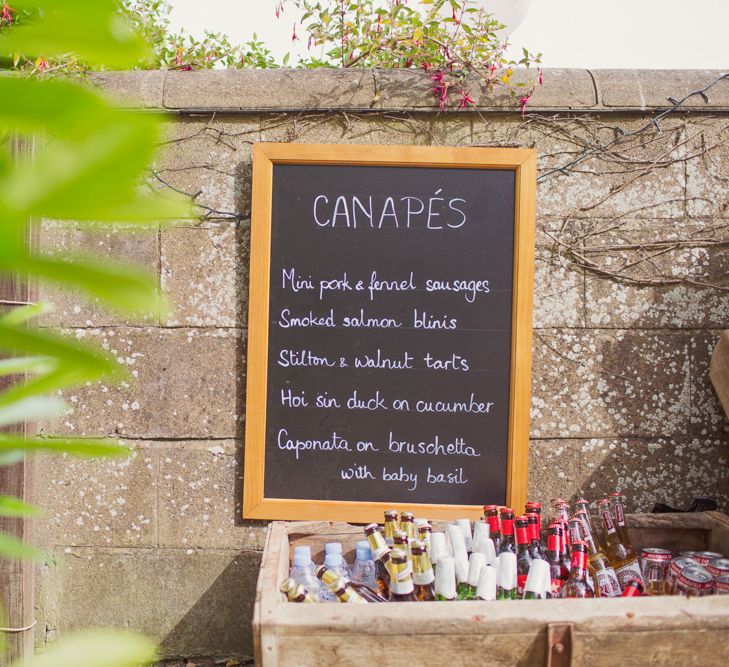 CANAPÉS
Mini pork & fennel sausages
Smoked salmon blinis
Stilton & walnut tarts
Hoi sin duck on cucumber
Caponata on bruschetta
with baby basil